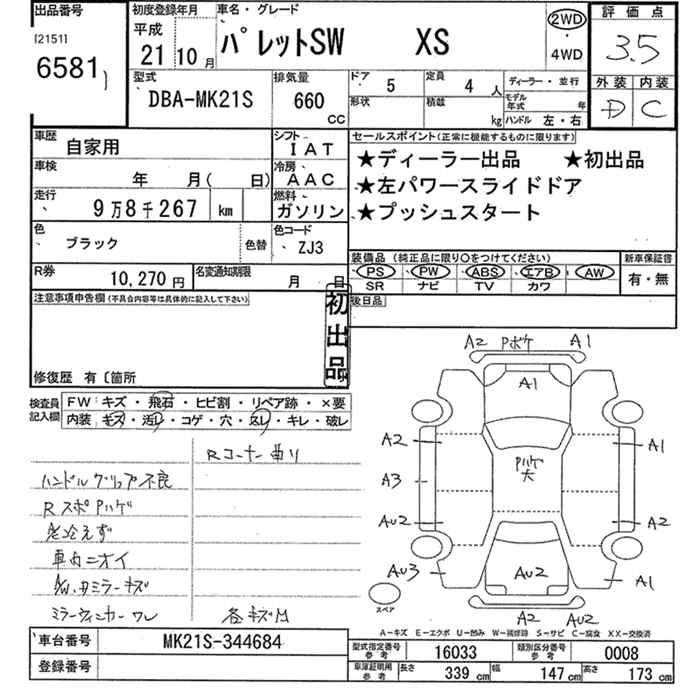 出品番号 初度登録年月 車名・グレード 評価点
[2151] 平成 パレットSW XS 2WD 3.5
6581 21年10月 4WD
外装 内装
D C
型式 排気量 ドア 5 定員 4 人 ディーラー・並行
DBA-MK21S 660 CC 形状 積載 kg モデル年式 年
ハンドル 左・右
車歴 自家用 シフト IAT セールスポイント(正常に機能するものに限ります)
車検 年 月( 日) 冷房 AAC ★ディーラー出品 ★初出品
走行 9万8千267 km 燃料 ガソリン ★左パワースライドドア
★プッシュスタート
色 ブラック 色替 色コード ZJ3
装備品(純正品に限り○をつけてください) 新車保証書
PS PW ABS エアB AW 有・無
SR ナビ TV カワ
R券 10,270円 名変通知期限 月 日
後日品
注意事項申告欄(不具合内容等は具体的に記入して下さい)
初出品
修復歴 有〔箇所
検査員記入欄 FW キズ・飛石・ヒビ割・リペア跡・×要
内装 キズ・汚レ・コゲ・穴・返し・キレ・破レ
Rコーナー曲リ
ハンドルグリップ不良
Rスポハゲ
冷えず
車内ニオイ
A/W.ミラーキズ
ミラーウィンカーワレ 各キズM
A2 Pボケ A1
A1
A2 A1
Pハゲ大
A3
AU2 A2
AU3 AU2 A1
スペア
A2 AU2
A-キズ E-エクボ U-凹み W-補修跡 S-サビ C-腐食 XX-交換済
車台番号 MK21S-344684
登録番号
型式指定番号 参考 16033 類別区分番号 参考 0008
車庫証明用 参考 長さ 339 cm 幅 147 cm 高さ 173 cm